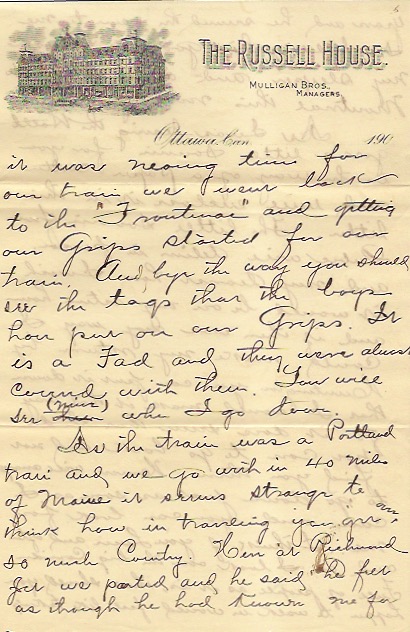 THE RUSSELL HOUSE.
MULLIGAN BROS.,
MANAGERS.
Ottawa, Can 190
it was neaing time for
our train we went back
to the "Frontinac" and getting
our Grips started for our
train. And bye the way you should
see the tags that the boys
hav put on our Grips. It
is a Fad and they were almost
covered with them. You will
see (mine) when I go down.
As the train was a Portland
train and we go with in 40 miles
of Maine it seems strange to
think how in traveling you go over
so much Country. Here at Richmond
Jct we parted and he said he felt
as though he had known me for